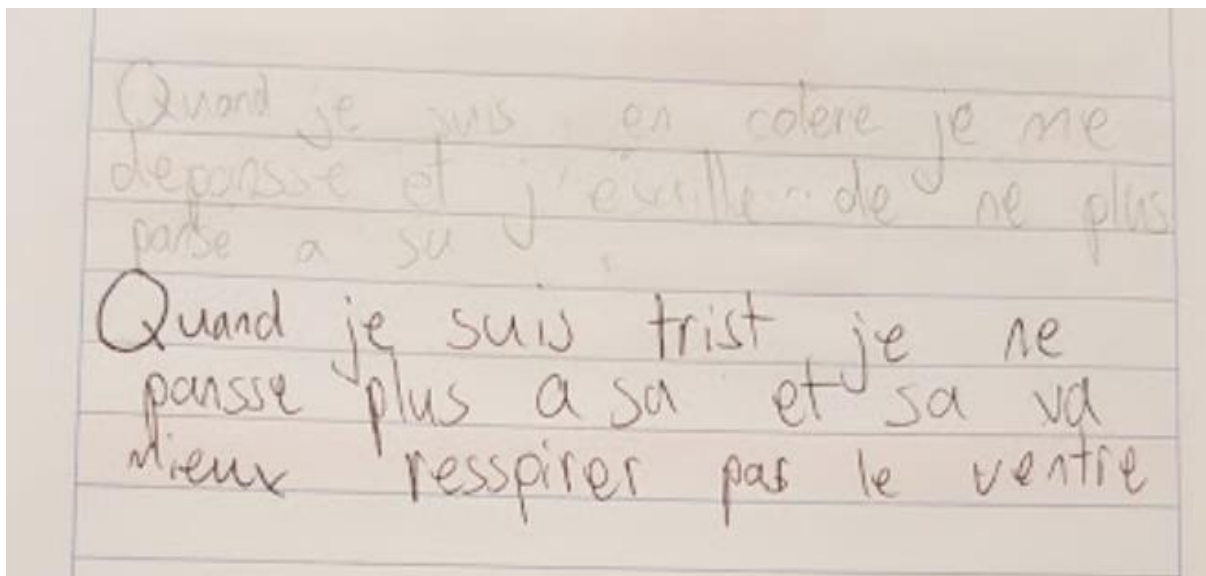 Quand je suis en colere je me
depansse et j'éssaille de ne plus
panse a sa
Quand je suis trist je ne
pansse plus a sa et sa va
mieux resspirer par le ventre